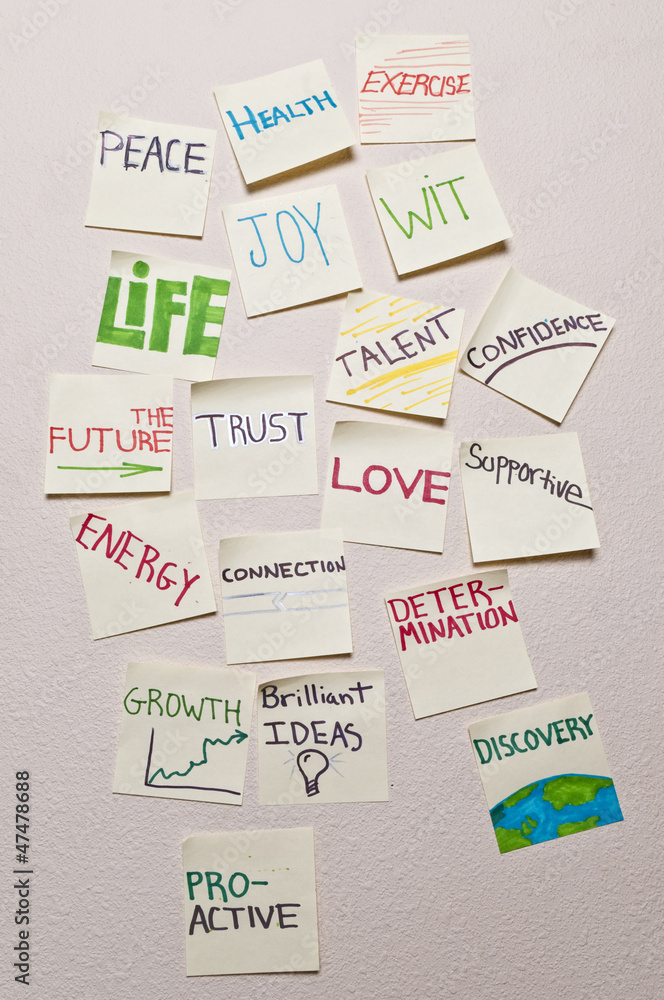 EXERCISE
HEALTH
PEACE
WiT
JOY
LiFE
TALENT
CONFIDENCE
THE
FUTURE
TRUST
LOVE
Supportive
ENERGY
CONNECTION
DETER-
MINATION
GROWTH
Brilliant
IDEAS
DISCOVERY
PRO-
ACTIVE
Adobe Stock | #47478688